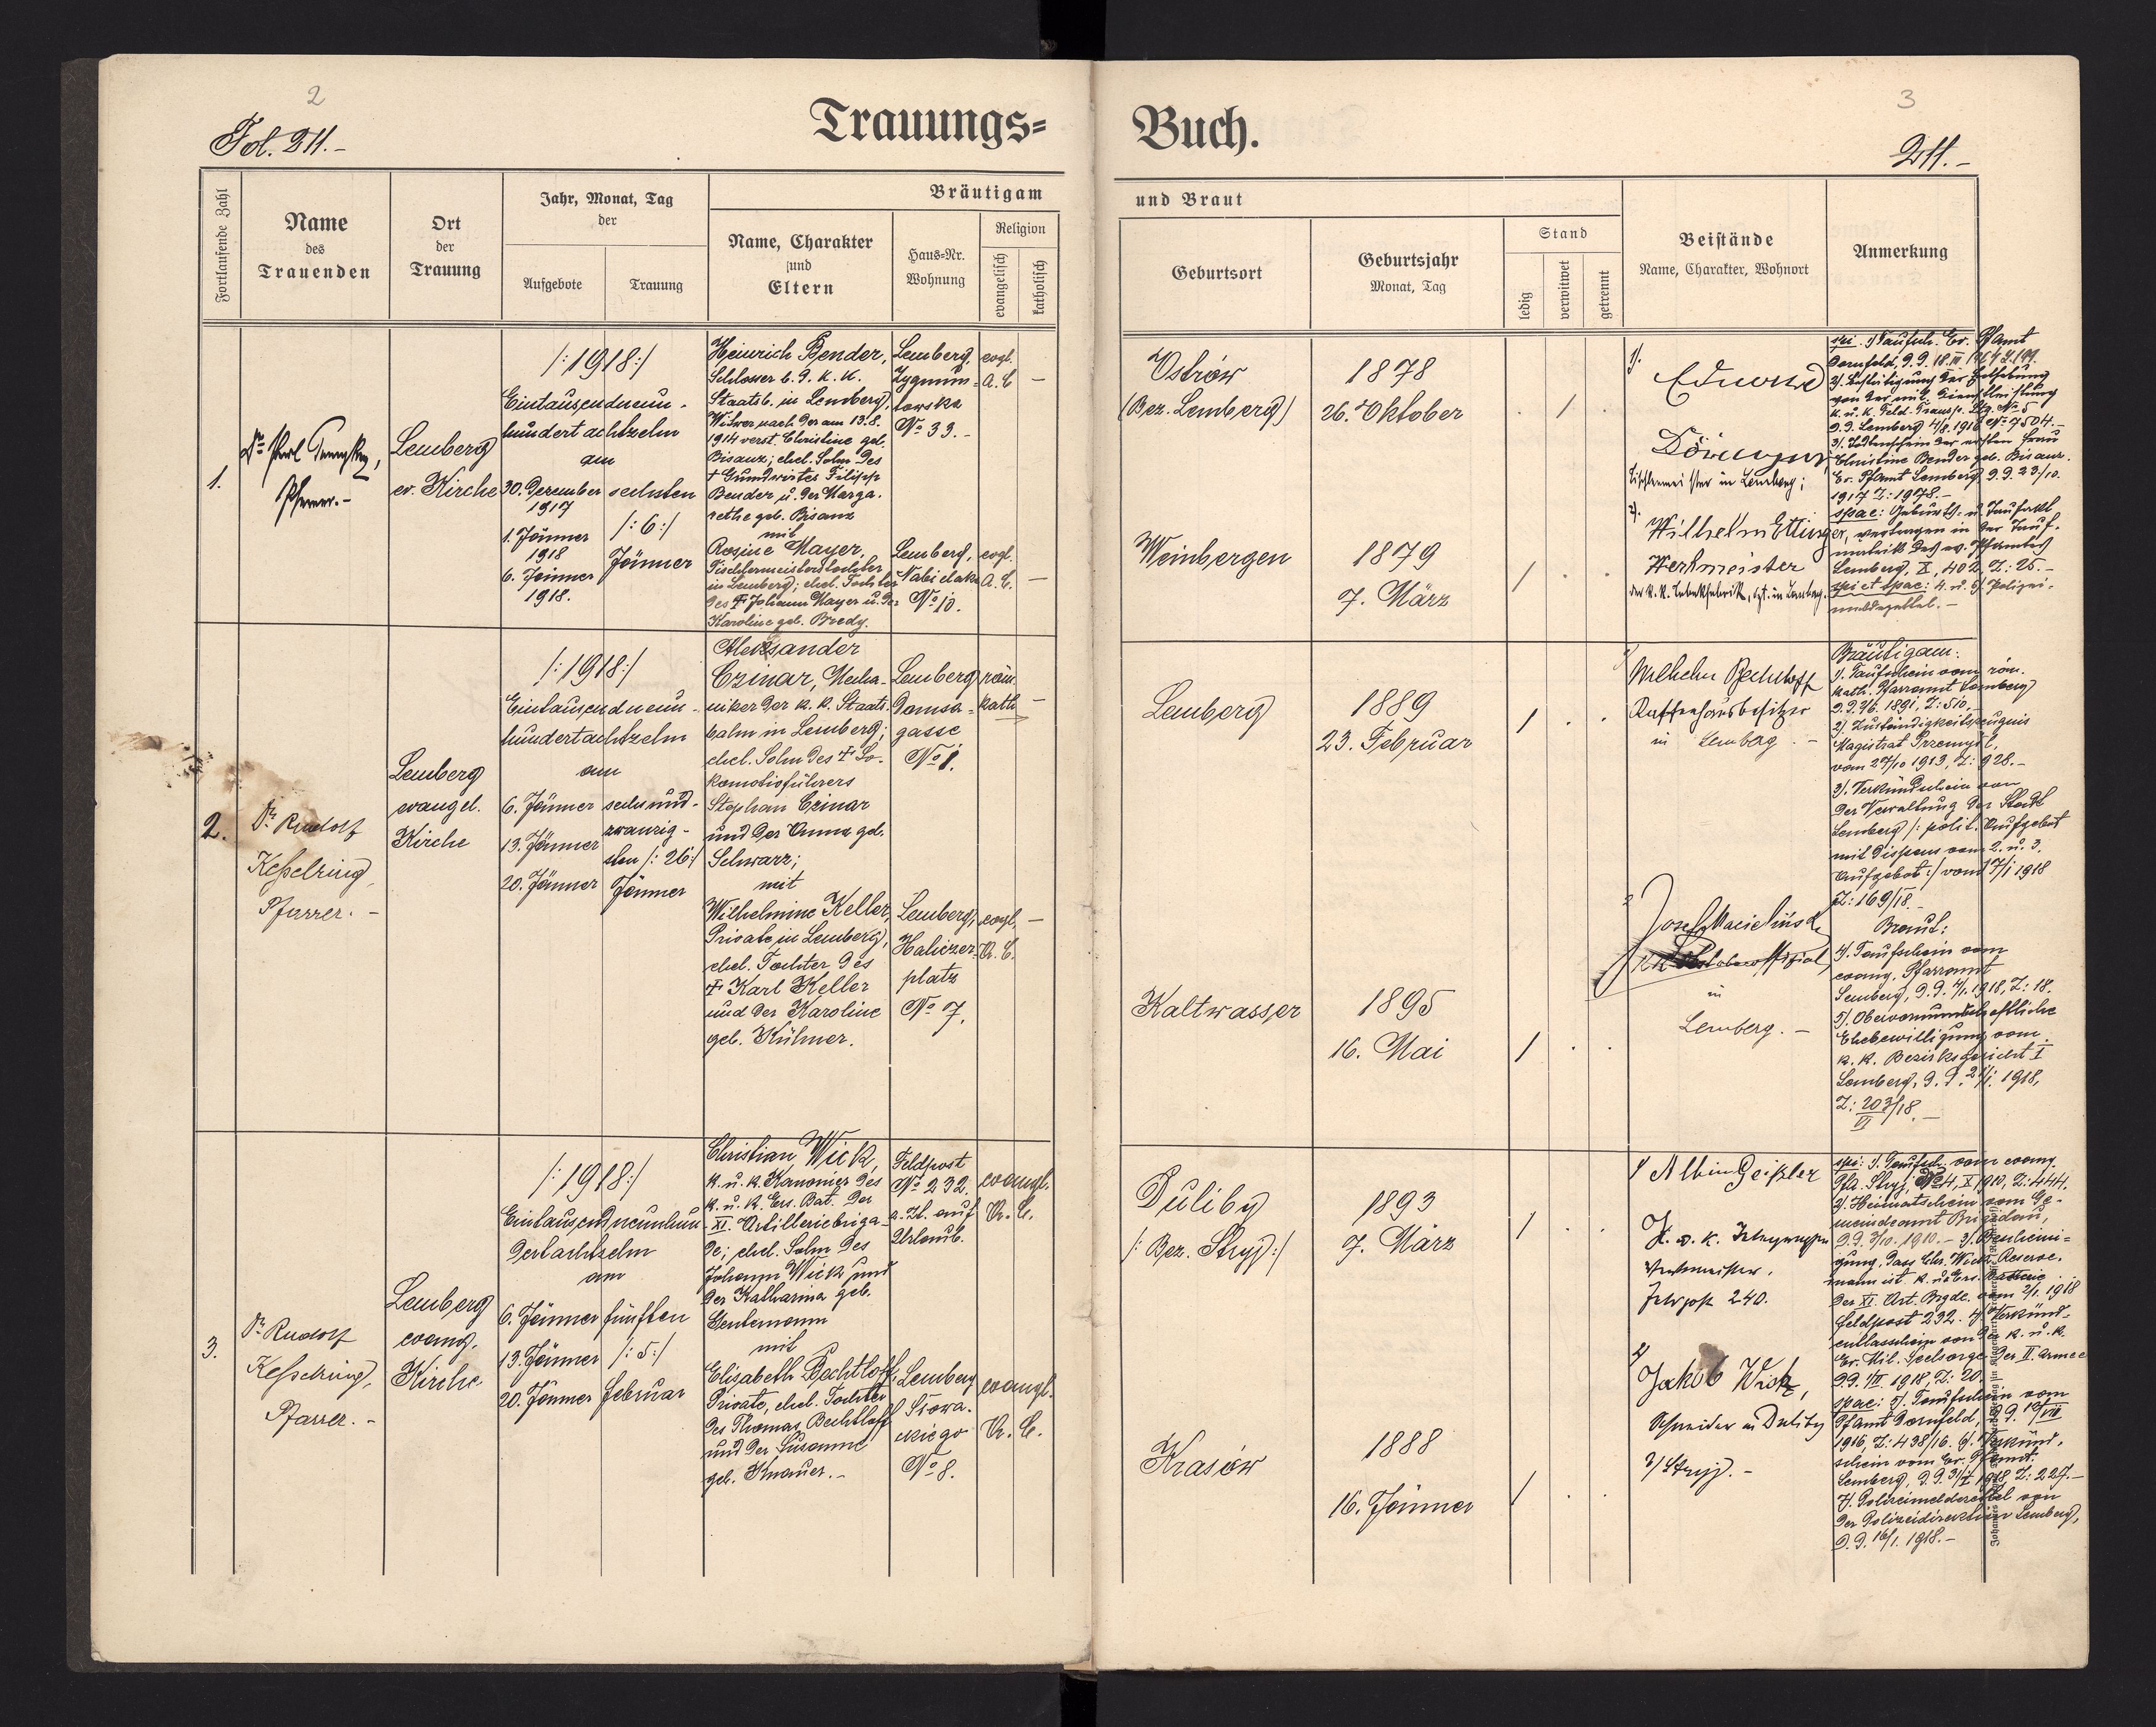 2
3
Fol. 211.-
Trauungs=
Buch.
211.-
Fortlaufende Zahl
Name
des
Trauenden
Ort
der
Trauung
Jahr, Monat, Tag
der
Aufgebote
Trauung
Bräutigam
Name, Charakter
und
Eltern
Haus=Nr.
Wohnung
Religion
evangelisch
katholisch
und Braut
Geburtsort
Geburtsjahr
Monat, Tag
Stand
ledig
verwitwet
getrennt
Beistände
Name, Charakter, Wohnort
Anmerkung
1.
Dr.
Pfarrer.-
Lemberg
ev. Kirche
/:1918:/
Eintausendneun-
hundert achtzehn
am
30. Dezember
1917
1. Jänner
1918
6. Jänner
1918.
sechsten
/:6:/
Jänner
Heinrich Bender,
Schlosser b. d. k. k.
Staatsb. in Lemberg,
Witwer nach der am 13.8.
1914 verst. Christine geb.
Bisanz; ehel. Sohn des
+ Grundwirtes Filipp
Bender u. der Marga-
rethe geb. Bisanz
mit
Rosine Mayer,
Tischlermeisterstochter
in Lemberg; ehel. Tochter
des + Johann Mayer u. der
Karoline geb. Bredy.
Lemberg,
Zygmun-
towska
No 33.-
Lemberg,
Nabielaka
No 10.
evgl.
A. C.
-
evgl.
A. C.
-
Ostrów
(Bez. Lemberg)
1878
26. Oktober
. / .
Weinbergen
1879
7. März
/ . .
1).
Eduard
Tischlermeister in Lemberg;
2).
Wilhelm Ettinger,
Werkmeister
spi. 1) Taufsch. Ev. Pfamt
Dornfeld, d. d. 18.III.
2). Bestätigung der Enthebung
von der mil. Dienstleistung
d. d. Lemberg 4/8. 1916 No 7504.-
3). Totenschein der ersten Frau
Christine Bender geb. Bisanz.
Ev. Pfamt Lemberg, d. d. 23/10.
1917 Z: 1978.-
spae: Geburts- u. Taufakt
vertragen in der Tauf-
matrik des ev. Pfamtes
Lemberg, X, 402, Z: 25.-
spi et spae: 4. u. 5). Polizei-
meldezettel.-
2.
Dr. Rudolf
Kesselring,
Pfarrer.-
Lemberg
evangel.
Kirche
/:1918:/
Eintausendneun-
hundertachtzehn
am
6. Jänner
13. Jänner
20. Jänner
sechsund-
zwanzig-
sten /:26:/
Jänner
Alexsander
Czinar, Mecha-
niker der k. k. Staats-
bahn in Lemberg;
ehel. Sohn des + Lo-
komotivführers
Stephan Czinar
und der Anna geb.
Schwarz;
mit
Wilhelmine Keller,
Private in Lemberg,
ehel. Tochter des
+ Karl Keller
und der Karoline
geb. Kühner.
Lemberg
Domsa-
gasse
No 8.
Lemberg,
Haliczer-
platz
No 7.
röm.
kath
-
evgl.
A. C.
-
Lemberg
1889
23. Februar
/ . .
Kaltwasser
1895
16. Mai
/ . .
1)
Wilhelm Bechtloff
Kaffeehausbesitzer
in Lemberg.-
2
Josef
in
Lemberg.-
Bräutigam:
1). Taufschein vom röm.
kath. Pfarramt Lemberg
d. d. 2/6. 1891, Z: 510.-
2). Zuständigkeitszeugnis
Magistrat Przemyśl,
vom 27/10 1913, Z: 928.-
3). Verkündschein von
der Verwaltung der Stadt
Lemberg /: polit. Aufgebot
mit Dispens vom 2. u. 3.
Aufgebot:/ vom 17/1 1918
Z: 169/18.-
Braut:
4). Taufschein vom
evang. Pfarramt
Lemberg, d. d. 4/1. 1918, Z: 18.
5). Obervormundschaftliche
Ehebewilligung vom
k. k. Bezirksgericht I
Lemberg, d. d. 21/1. 1918,
Z: 203/18.-
VI
3.
Dr. Rudolf
Kesselring,
Pfarrer.-
Lemberg
evang.
Kirche
/:1918:/
Eintausendneunhun-
dertachtzehn
am
6. Jänner
13. Jänner
20. Jänner
fünften
/:5:/
Februar
Christian Wick,
k. u. k. Kanonier des
k. u. k. Ers. Bat. der
XI. Artilleriebriga-
de; ehel. Sohn des
Johann Wick und
der Katharina geb.
Gentemann
mit
Elisabeth Bechtloff,
Private, ehel. Tochter
des Thomas Bechtloff
und der Susanne
geb. Knauer.-
Feldpost
No 232.
z. Zt. auf
Urlaub.
Lemberg
Słowa-
ckiego
No 8.
evangl.
A. C.
evangl.
A. C.
Duliby
/: Bez. Stryj:/
1893
7. März
/ . .
Krasów
1888
16. Jänner
/ . .
1) Albin Geißler
Feldpost 240.
2)
Jakob Wick,
Schneider in Duliby
b/Stryj.-
spi: 1. Taufsch. vom evang.
Pfa. Stryj, X 1910, Z: 444.
2). Heimatschein vom Ge-
meindeamt Brigidau,
d. d. 3/10. 1910.- 3). Bescheini-
gung, dass Chr. Wick Reserve-
mann ist. k. u. k. Ers. Batterie
der XI. Art. Brgde. vom 2/1. 1918
Feldpost 232. 4). Verkünd-
entlasschein von der k. u. k.
Ev. Mil. Seelsorge der II. Armee
d. d. 1/II. 1918, Z: 20.
spae: 5). Taufschein vom
Pfamt Dornfeld, d. d. 12/VIII
1916, Z: 438/16. 6). Verkünd-
schein vom Ev. Pfamt
Lemberg, d. d. 31/I 1918, Z: 229.-
7). Polizeimeldezettel von
der Polizeidirektion Lemberg,
d. d. 16/1. 1918.-